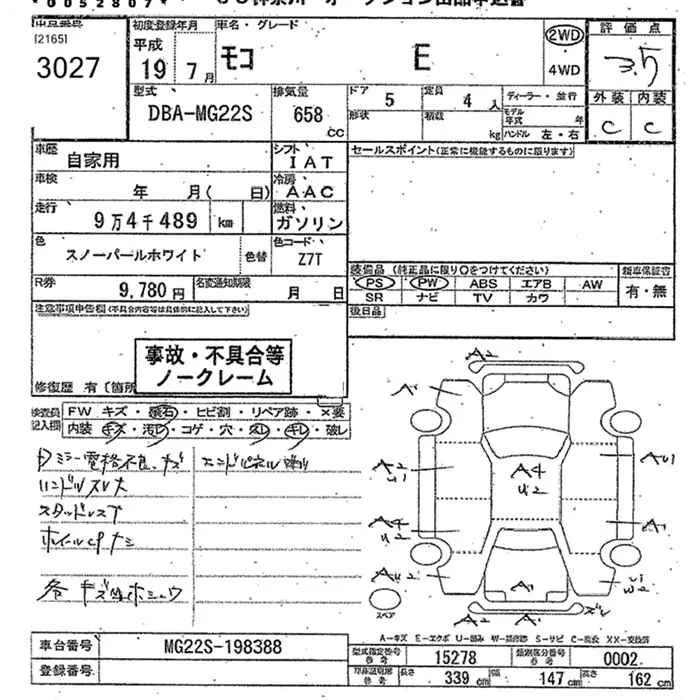 *0052807*
[2165]
3027
初度登録年月
平成
19 7月
車名・グレード
モコ E
2WD
4WD
評価点
3.5
外装 内装
C C
型式
DBA-MG22S
排気量
658 CC
ドア
5
定員
4 人
形状
積載
kg
ディーラー・並行
モデル年式 年
ハンドル 左・右
車歴
自家用
シフト
IAT
車検
年 月( 日)
冷房
AAC
走行
9万4千489 km
燃料
ガソリン
色
スノーパールホワイト
色替
色コード
Z7T
R券
9,780円
名変通知期限
月 日
セールスポイント(正常に機能するものに限ります)
装備品 (純正品に限り○をつけてください)
PS PW ABS エアB AW
SR ナビ TV カワ
新車保証書
有・無
後日品
注意事項申告欄(不具合内容等は具体的に記入して下さい)
事故・不具合等
ノークレーム
修復歴 有〔箇所
検査員記入欄
FW キズ・飛石・ヒビ割・リペア跡・×要
内装 キズ・汚レ・コゲ・穴・スレ・キレ・破レ
ハンドルスレ大
スタッドレス
A2
A1
A2
U1
A4
U2
A4
U2
AU1
A1
AU2
A1
U1
W2
スペア
A-キズ E-エクボ U-凹み W-補修跡 S-サビ C-腐食 XX-交換済
車台番号
MG22S-198388
登録番号
型式指定番号
参考
15278
類別区分番号
参考
0002
長さ
339 cm
幅
147 cm
高さ
162 cm